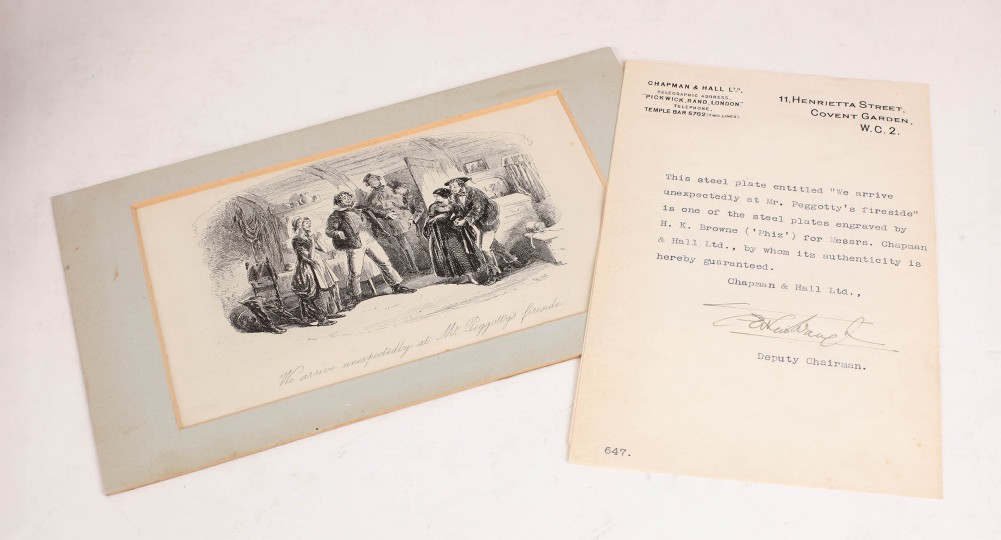 We arrive unexpectedly at Mr. Peggotty's fireside
CHAPMAN & HALL LTD.,
TELEGRAPHIC ADDRESS,
"PICKWICK, RAND, LONDON."
TELEPHONE,
TEMPLE BAR 5762 (TWO LINES)
11, HENRIETTA STREET,
COVENT GARDEN,
W.C. 2.
This steel plate entitled "We arrive
unexpectedly at Mr. Peggotty's fireside"
is one of the steel plates engraved by
H. K. Browne ('Phiz') for Messrs. Chapman
& Hall Ltd., by whom its authenticity is
hereby guaranteed.
Chapman & Hall Ltd.,
Deputy Chairman.
647.